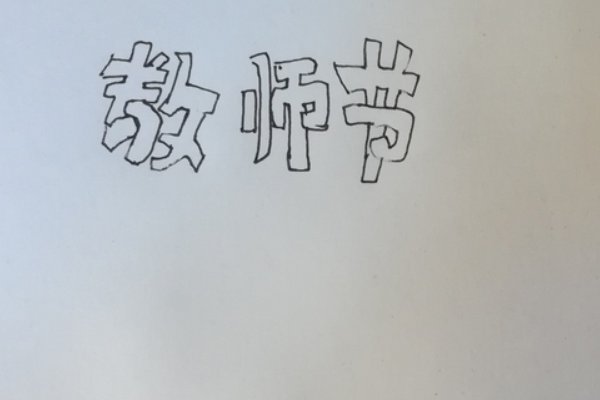 教师节